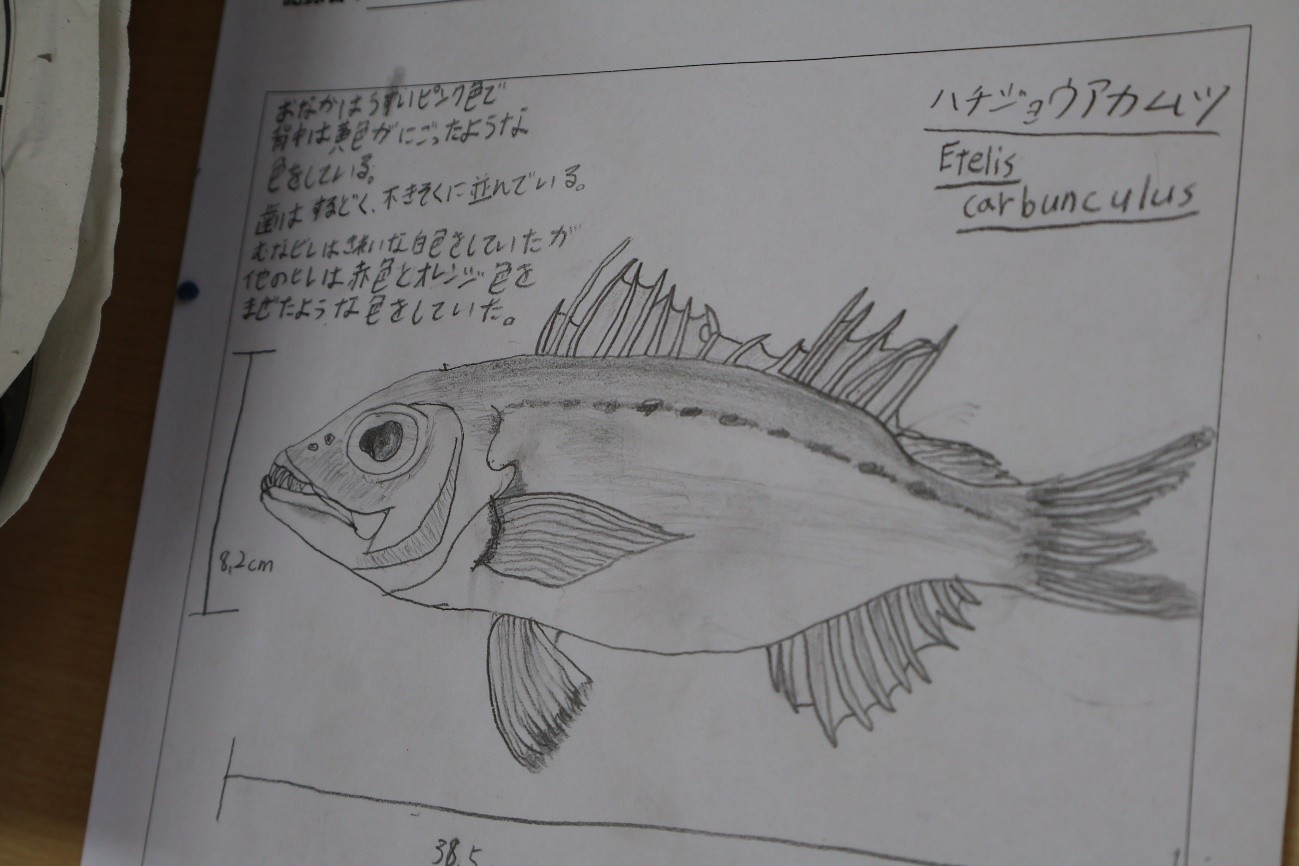 おなかはうすいピンク色で
背中は黄色がにごったような
色をしている。
歯はするどく、不きそくに並んでいる。
むなビレはきれいな白色をしていたが
他のヒレは赤色とオレンジ色を
まぜたような色をしていた。
ハチジョウアカムツ
Etelis
carbunculus
8,2cm
38.5